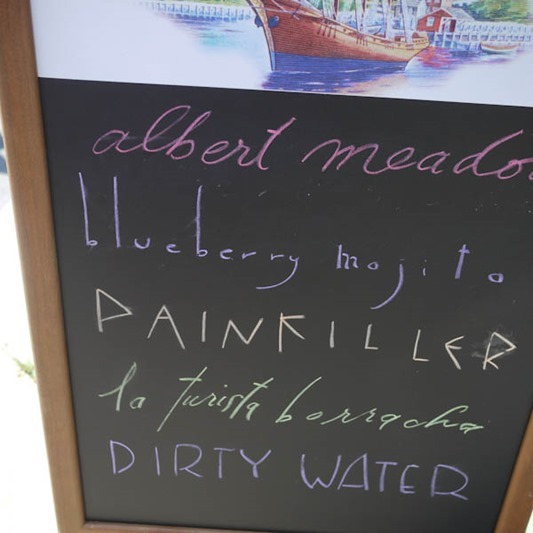 albert meado
blueberry mojito
PAINKILLER
la turista borracha
DIRTY WATER